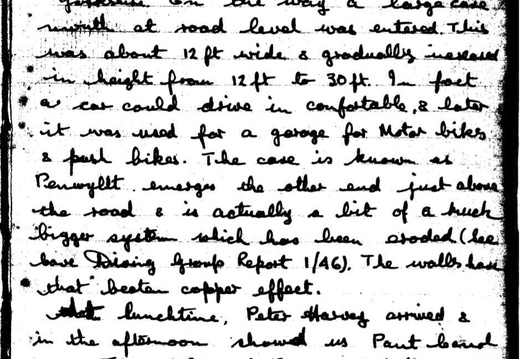 on the way a large cave
mouth at road level was entered. This
was about 12 ft wide & gradually increased
in height from 12 ft to 30 ft. In fact
a car could drive in comfortable, & later
it was used for a garage for Motor bikes
& push bikes. The cave is known as
Penwyllt emerges the other end just above
the road & is actually a bit of a much
bigger system which has been eroded (See
Cave Diving Group Report 1/46). The walls have
that beaten copper effect.
lunchtime, Peter Harvey arrived &
in the afternoon showed us Pant